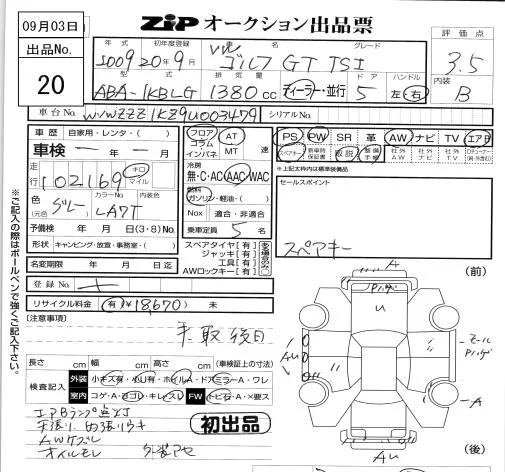 09月03日
ZIP オークション出品票
評価点
3.5
出品No.
20
年式
初年度登録
車名
グレード
2009
20年9月
VW
ゴルフ GT TSI
内装
B
型式
排気量
ドア
ハンドル
ABA-1KBLG
1380cc
ディーラー・並行
5
左・右
車台No.
WVWZZZ1KZ9U003479
シリアルNo.
車歴 自家用・レンタ・( )
車検 ー年ー月
走行 102169 キロ マイル
色(元色) グレー
カラーNo. LA7T
内装色
予備検 年 月 日(3・8)No.
形状 キャンピング・放宣・事務室・( )
名変期限 年 月 日
フロア コラム インパネ
AT MT 速
冷房
無・C・AC AAC・WAC
燃料
ガソリン・軽油・( )
Nox 適合・非適合
乗車定員 5 名
スペアタイヤ[有]
ジャッキ[有]
工具[有]
AWロックキー[有]
ある場合のみ○
PS PW SR 革 AW ナビ TV エアB
スペアキー 新車時保証書 取説 整備手帳 社外AW 社外ナビ 社外TV
※上記太枠内は標準装備品
セールスポイント
スペアキー
登録No.
リサイクル料金 有 ¥18,670 未
(注意事項)
未取後日
長さ cm 幅 cm 高さ cm (車検証上の寸法)
検査記入
外装 小キズ有・小U有・ホイルA・ドアミラーA・ワレ
室内 コゲ・A・ヨゴレ・キレ・スレ FW トビ石・A・×要ス
エアBランプ点灯
天張り 内張リウキ
AWケズレ
オイルモレ
外装アセ
初出品
(前)
(後)
A
U
AU
モール
A
AU
※ご記入の際はボールペンで強くご記入下さい。